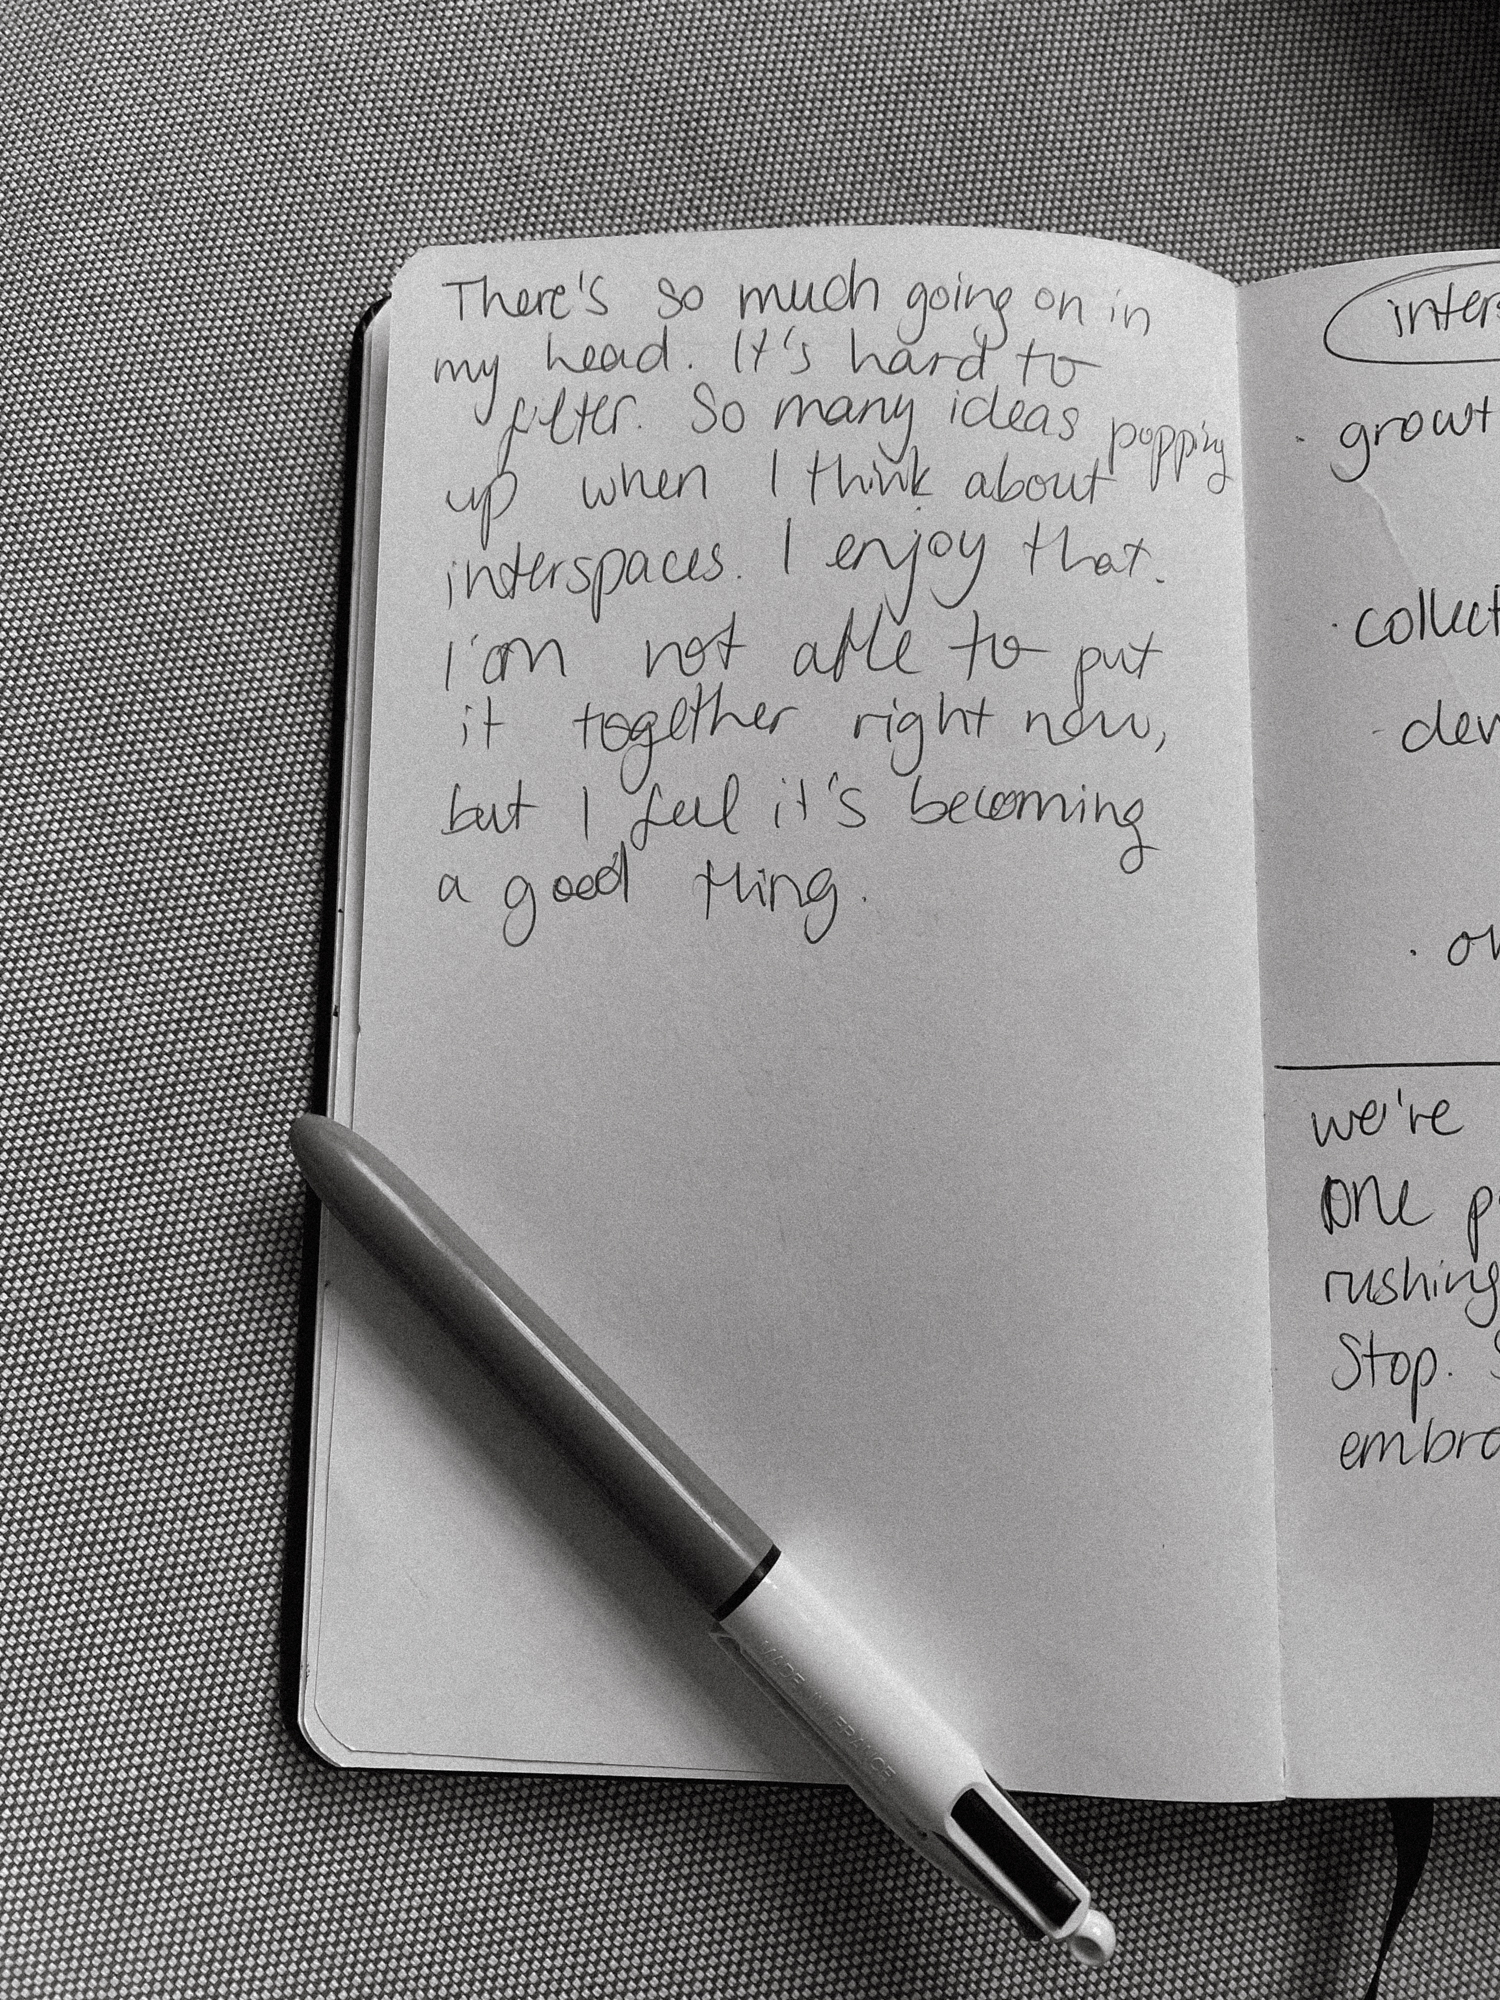 There's so much going on in
my head. It's hard to
filter. So many ideas popping
up when I think about
interspaces. I enjoy that.
I'am not able to put
it together right now,
but I feel it's becoming
a good thing.
inters
· growt
· collect
- dev
· on
we're
one p
rushing
Stop. S
embra
MADE IN FRANCE